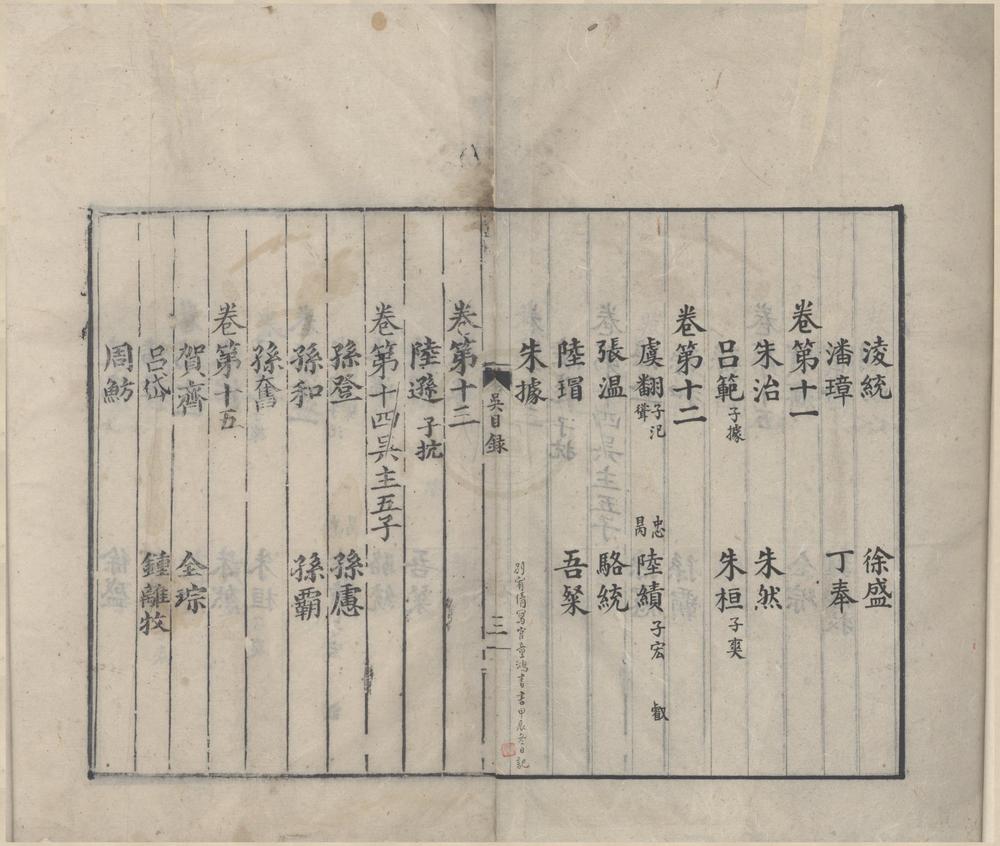 淩統　徐盛
潘璋　丁奉
卷第十一
朱治　朱然
吕範子據　朱桓子
卷第十二
虞翻子汜　忠
聳　昺　陸績子宏　叡
張温　駱統
陸瑁　吾粲
朱據
寫官童鴻書甲辰冬日記
吳目錄　三
卷第十三
陸遜　子抗
卷第十四吳主五子
孫登　孫慮
孫和　孫霸
孫奮
卷第十五
賀齊　全琮
吕岱　鍾離牧
周魴